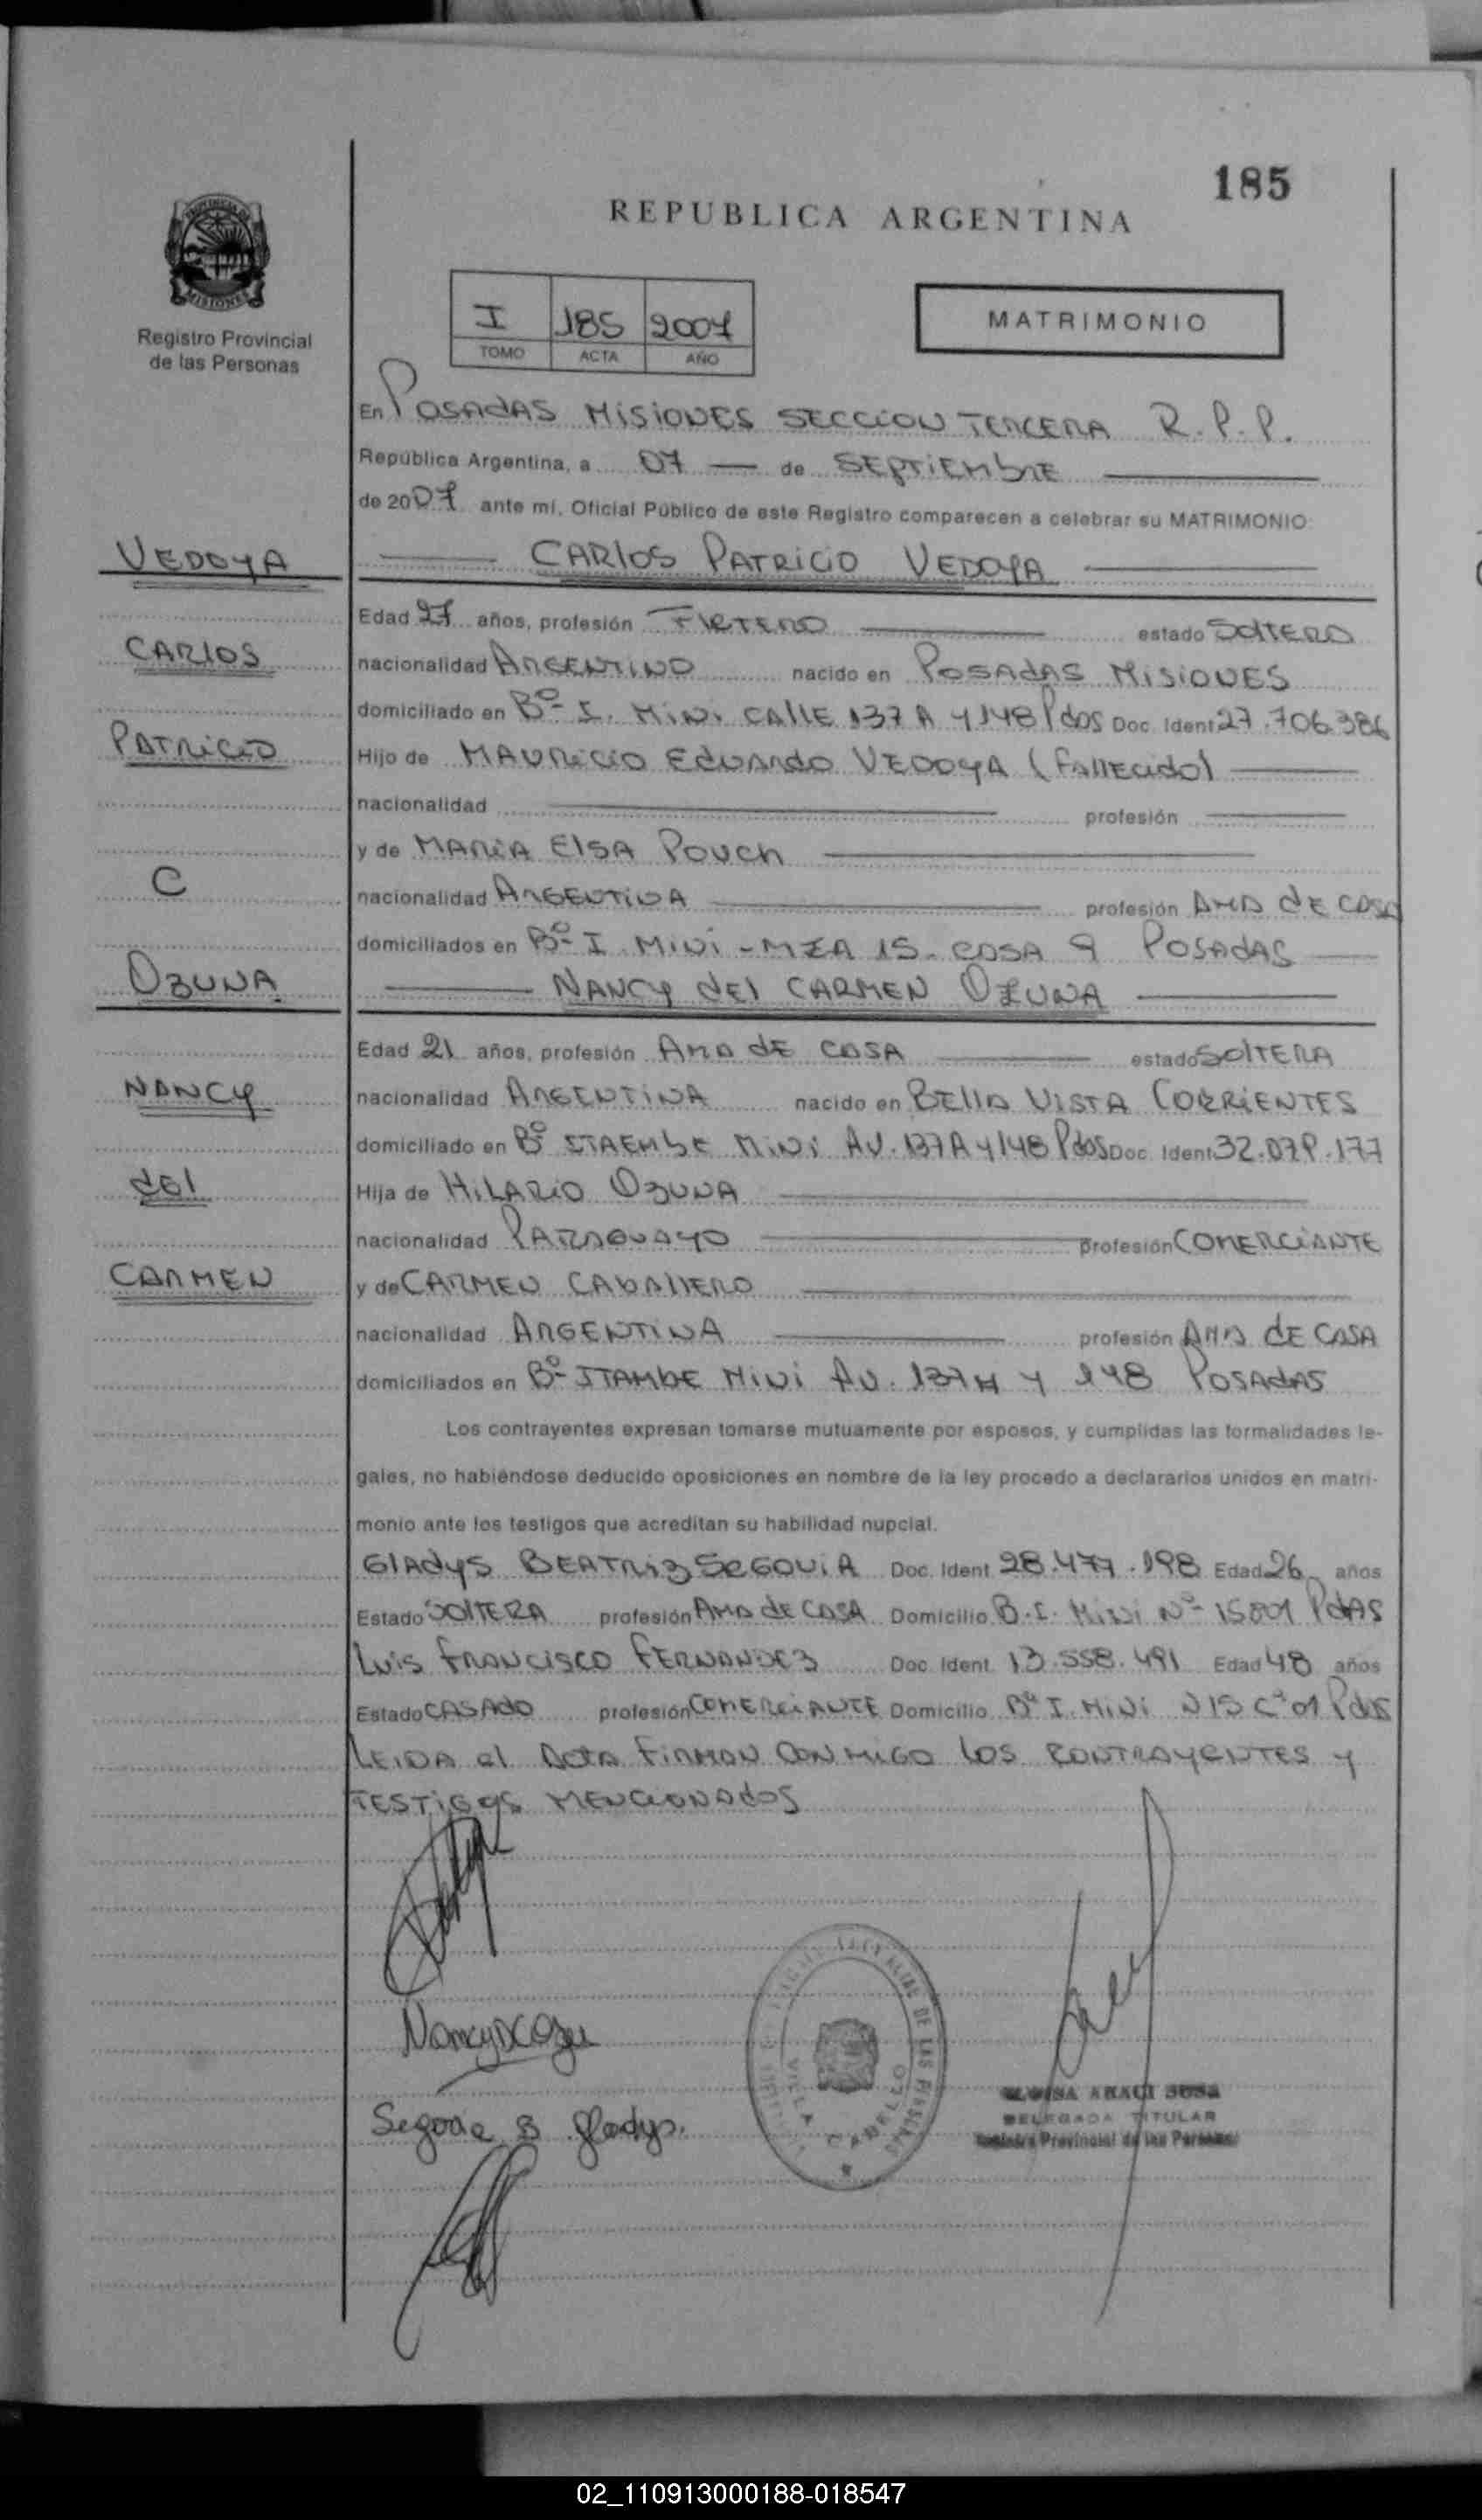 185
REPUBLICA ARGENTINA
PROVINCIA DE
MISIONES
Registro Provincial
de las Personas
I 185 2007
TOMO ACTA AÑO
MATRIMONIO
En POSADAS MISIONES SECCION TERCERA R.P.P.
República Argentina, a 07 de SEPTIEMBRE
de 2007 ante mí, Oficial Público de este Registro comparecen a celebrar su MATRIMONIO:
VEDOYA
CARLOS PATRICIO VEDOYA
Edad 27 años, profesión FLETERO estado SOLTERO
CARLOS
nacionalidad ARGENTINO nacido en POSADAS MISIONES
domiciliado en Bº I. MINI CALLE 137 A Y 148 Pdos Doc. Ident 27.706.386
PATRICIO
Hijo de MAURICIO EDUARDO VEDOYA (FALLECIDO)
nacionalidad profesión
y de MARIA ELSA POUCH
C
nacionalidad ARGENTINA profesión AMA DE CASA
domiciliados en Bº I. MINI - MZA 15. CASA 9 POSADAS
OZUNA
NANCY DEL CARMEN OZUNA
Edad 21 años, profesión AMA DE CASA estado SOLTERA
NANCY
nacionalidad ARGENTINA nacido en BELLA VISTA CORRIENTES
domiciliado en Bº ITAEMBE MINI AV. 137 A Y 148 Pdos Doc. Ident 32.079.177
DEL
Hija de HILARIO OZUNA
nacionalidad PARAGUAYO profesión COMERCIANTE
CARMEN
y de CARMEN CABALLERO
nacionalidad ARGENTINA profesión AMA DE CASA
domiciliados en Bº ITAMBE MINI AV. 137 Y 148 POSADAS
Los contrayentes expresan tomarse mutuamente por esposos, y cumplidas las formalidades le-
gales, no habiéndose deducido oposiciones en nombre de la ley procedo a declararlos unidos en matri-
monio ante los testigos que acreditan su habilidad nupcial.
GLADYS BEATRIZ SEGOVIA Doc. Ident 28.477.198 Edad 26 años
Estado SOLTERA profesión AMA DE CASA Domicilio B. I. MINI Nº PdAS
LUIS FRANCISCO FERNANDEZ Doc. Ident. 13.558.491 Edad 48 años
Estado CASADO profesión COMERCIANTE Domicilio Bº I. MINI Pdas
LEIDA el ACTA FIRMAN CONMIGO LOS CONTRAYENTES Y
TESTIGOS MENCIONADOS
Segovia B Gladys.
DE LAS PERSONAS
VILLA CABELLO
ARACI SOSA
DELEGADA TITULAR
Registro Provincial de las Personas
02_110913000188-018547